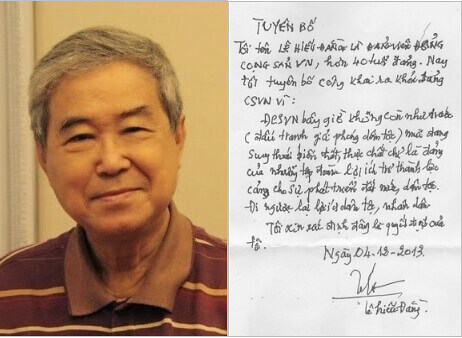 TUYÊN BỐ
Tôi tên LÊ HIẾU ĐẰNG LÀ ĐẢNG VIÊN ĐẢNG
CỘNG SẢN VN, hơn 40 tuổi đảng. Nay
tôi tuyên bố công khai ra khỏi đảng
CSVN vì:
ĐCSVN bây giờ không còn như trước
(đấu tranh giải phóng dân tộc) mà đang
suy thoái biến chất, thực chất chỉ là đảng
của những tập đoàn lợi ích trở thành lực
cản cho sự phát triển đất nước, dân tộc.
Đi ngược lại lợi ích dân tộc, nhân dân
Tôi xin xác định đây là quyết định của
tôi.
Ngày 04.12.2013
Lê Hiếu Đằng